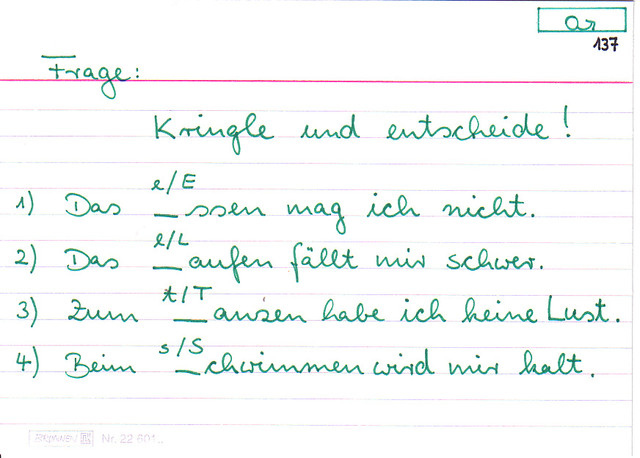 Or
137
Frage:
Kringle und entscheide!
e/E
1) Das _ssen mag ich nicht.
l/L
2) Das _aufen fällt mir schwer.
t/T
3) Zum _anzen habe ich keine Lust.
s/S
4) Beim _chwimmen wird mir kalt.
BRUNNEN Nr. 22 601..